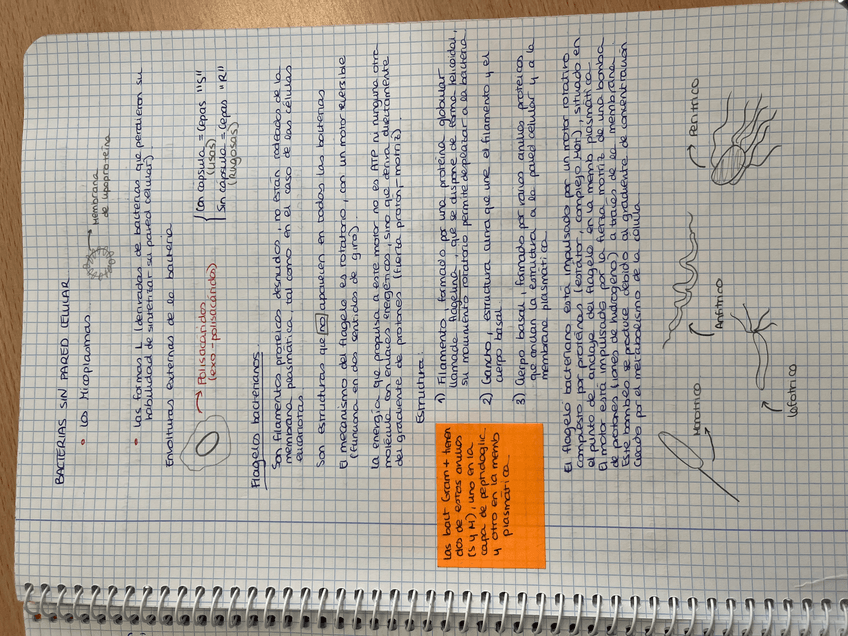 BACTERIAS SIN PARED CELULAR
• Los Micoplasmas.
Membrana
de lipoproteina
• Las formas L (derivadas de bacterias que perdieron su
habilidad de sintetizar su pared celular)
Envolturas externas de la bacteria
Polisacáridos
(exo-polisacáridos)
Con capsula = Cepas "S"
(lisas)
Sin capsula = Cepas "R"
(Rugosas)
Flagelos bacterianos.
Son filamentos proteicos desnudos, no están rodeados de la
membrana plasmática, tal como en el caso de las células
eucariotas
Son estructuras que no aparecen en todas las bacterias
El mecanismo del flagelo es rotatorio, con un motor reversible
(funciona en dos sentidos de giro).
La energía que propulsa a este motor no es ATP ni ninguna otra
molécula con enlaces energéticos, sino que deriva directamente
del gradiente de protones (fuerza protón-motriz).
Estructura:
1) Filamento, formado por una proteína globular
llamada flagelina, que se dispone de forma helicoidal,
su movimiento rotatorio permite desplazar a la bacteria
2) Gancho, estructura curva que une el filamento y el
cuerpo basal.
3) Cuerpo basal, formado por varios anillos proteicos
que anclan la estructura a la pared celular y a la
membrana plasmática.
Las bact Gram + tienen
dos de estos anillos
(S y M), uno en la
capa de peptidoglic.
y otro en la memb
plasmática.
El flagelo bacteriano está impulsado por un motor rotativo
compuesto por proteínas (estátor, complejo Mot), situado en
el punto de anclaje del flagelo en la memb plasmática.
El motor está impulsado por la fuerza motriz de una bomba
de protones (iones de hidrogeno) a través de la membrana.
Este bombeo se produce debido al gradiente de concentración
creado por el metabolismo de la célula.
Monotrico
Lofotrico
Anfitrico
Peritrico